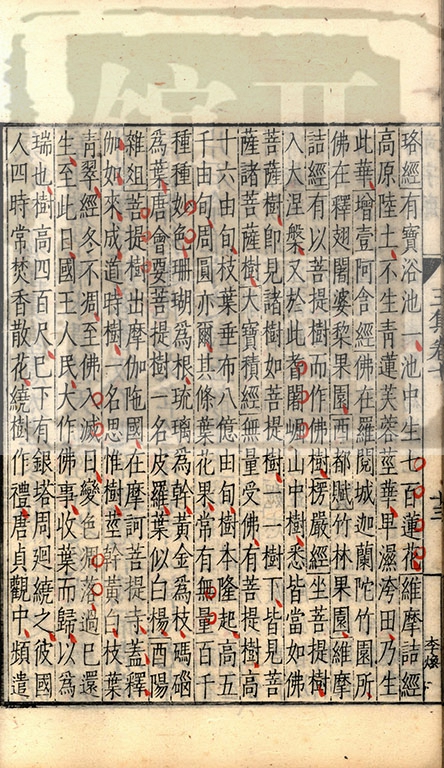 珞經有寶浴池一池中生七百蓮花維摩詰經
高原陸土不生青蓮芙蓉莖華卑濕洿田乃生
此華增壹阿含經佛在羅閱城迦蘭陀竹園所
佛在釋翅闍婆黎果園西都賦竹林果園維摩
詰經有以菩提樹而作佛樹楞嚴經坐菩提樹
入大涅槃又於此耆闍崛山中樹悉皆當如佛
菩薩樹即見諸樹如菩提樹一一樹下皆見菩
薩諸菩薩樹大寶積經無量受佛有菩提樹高
十六由旬枝葉垂布八億由旬樹本隆起高五
千由旬周圓亦爾其條葉花果常有無量百千
種種妙色珊瑚為根琉璃為幹黃金為枝碼碯
為葉唐會要菩提樹一名皮羅葉似白楊酉陽
雜俎菩提樹出摩伽陁國在摩訶菩提寺蓋釋
伽如來成道時樹一名思惟樹莖幹黃白枝葉
青翠經冬不凋至佛入滅日變色凋落過已還
生至此日國王人民大作佛事收葉而歸以為
瑞也樹高四百尺巳下有銀塔周迴繞之彼國
人四時常焚香散花繞樹作禮唐貞觀中頻遣